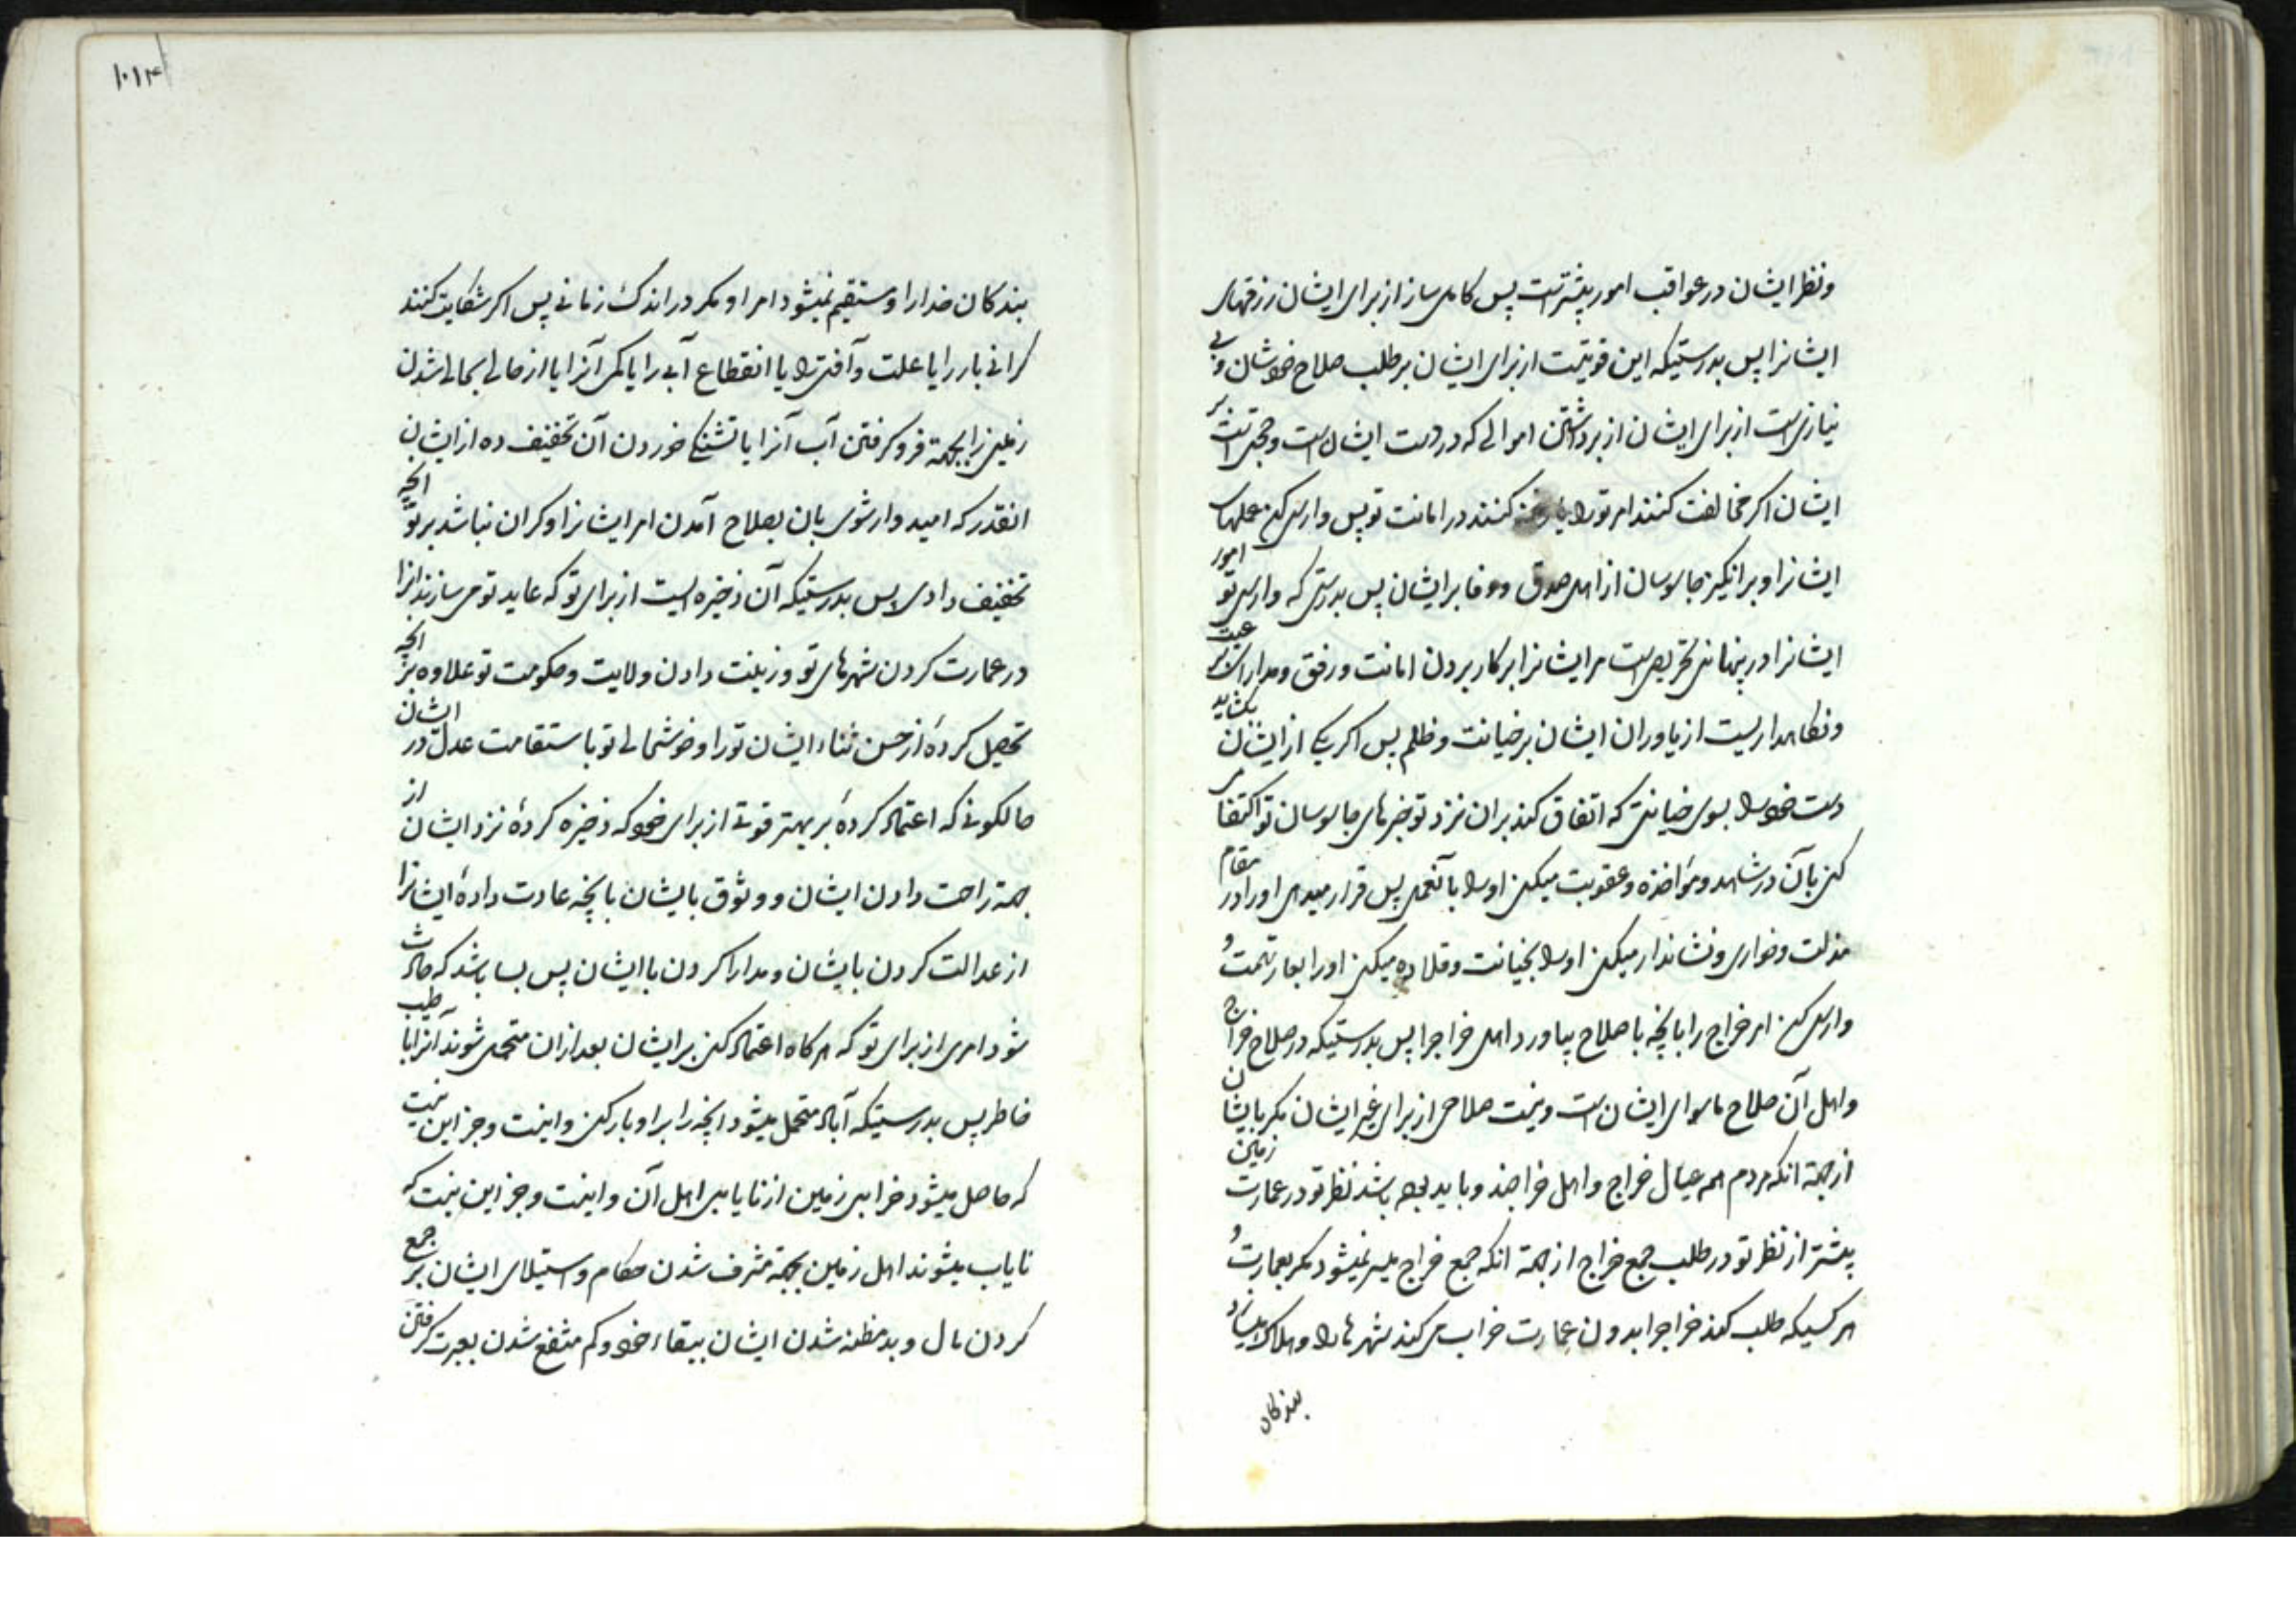 ونظر ایشان در عواقب امور بیشتر است پس کامل ساز از برای ایشان رزقهای
ایشانرا پس بدرستیکه این قوتیست از برای ایشان بر طلب صلاح خودشان و بی
نیازی است از برای ایشان از برداشتن اموالی که در دست ایشان است و حجتی است بر
ایشان اگر مخالفت کنند امر تو را یا رخنه کنند در امانت تو پس وارسی کن عملهای
ایشانرا و برانگیز جاسوسان از اهل صدق و وفا بر ایشان پس بدرستی که وارسی تو امور
ایشانرا در پنهانی تحریص است مر ایشانرا بر کار بردن امانت و رفق و مدارا بر رعیت
ونگاهداریست از یاوران ایشان بر خیانت و ظلم پس اگر یکی از ایشان بگشاید
دست خود را بسوی خیانتی که اتفاق کند بران نزد تو خبرهای جاسوسان تو اکتفا می
کنی بآن در شاهد و مؤاخذه و عقوبت میکنی او را بآنعمل پس قرار میدهی او را در مقام
مذلت و خواری و نشاندار میکنی او را بخیانت و قلاده میکنی او را بعار تهمت و
وارسی کن امر خراج را بانچه باصلاح بیاورد اهل خراجرا پس بدرستیکه در صلاح خراج
واهل آن صلاح ماسوای ایشان است و نیست صلاحی از برای غیر ایشان مگر بایشان
از جهة انکه مردم همه عیال خراج و اهل خراجند و باید بوده باشد نظر تو در عمارت زمین
بیشتر از نظر تو در طلب جمع خراج از جهة انکه جمع خراج میسر نمیشود مگر بعمارت و
هر کسیکه طلب کند خراجرا بدون عمارت خراب می کند شهرها را و هلاک میسازد
بندکان
۱۰۱۴
بندکان خدا را و مستقیم نمیشود امر او مگر در اندک زمانی پس اگر شکایت کنند
گرانی بار را یا علت و آفتی را یا انقطاع آبی را یا کمی آنرا یا از حالی بحالی شدن
زمینی را بجهة فرو گرفتن آب آنرا یا تشنکی خوردن آن تخفیف ده از ایشان
انقدر که امیدوار شوی بان بصلاح آمدن امر ایشانرا و گران نباشد بر تو انچه
تخفیف دادی پس بدرستیکه آن ذخیره ایست از برای تو که عاید تو می سازند انرا
در عمارت کردن شهرهای تو و زینت دادن ولایت و حکومت تو علاوه بر انچه
تحصیل کردهٔ از حسن ثناء ایشان تو را و خوشحالی تو باستقامت عدل در ایشان
حالکونی که اعتماد کردهٔ بر بهتر قوتی از برای خود که ذخیره کردهٔ نزد ایشان از
جهة راحت دادن ایشان و وثوق بایشان بانچه عادت دادهٔ ایشانرا
از عدالت کردن بایشان و مدارا کردن با ایشان پس بسا باشد که حادث
شود امری از برای تو که هرگاه اعتماد کنی بر ایشان بعد ازان متحمل شوند آنرا با طیب
خاطر پس بدرستیکه آباد متحمل میشود انچه را بر او بار کنی و اینست و جز این نیست
که حاصل میشود خرابی زمین از نایابی اهل آن و اینست و جز این نیست که
نایاب میشوند اهل زمین بجهة مشرف شدن حکام و استیلای ایشان بر جمع
کردن مال و بدمظنه شدن ایشان ببقاء خود و کم منتفع شدن بعبرت گرفتن